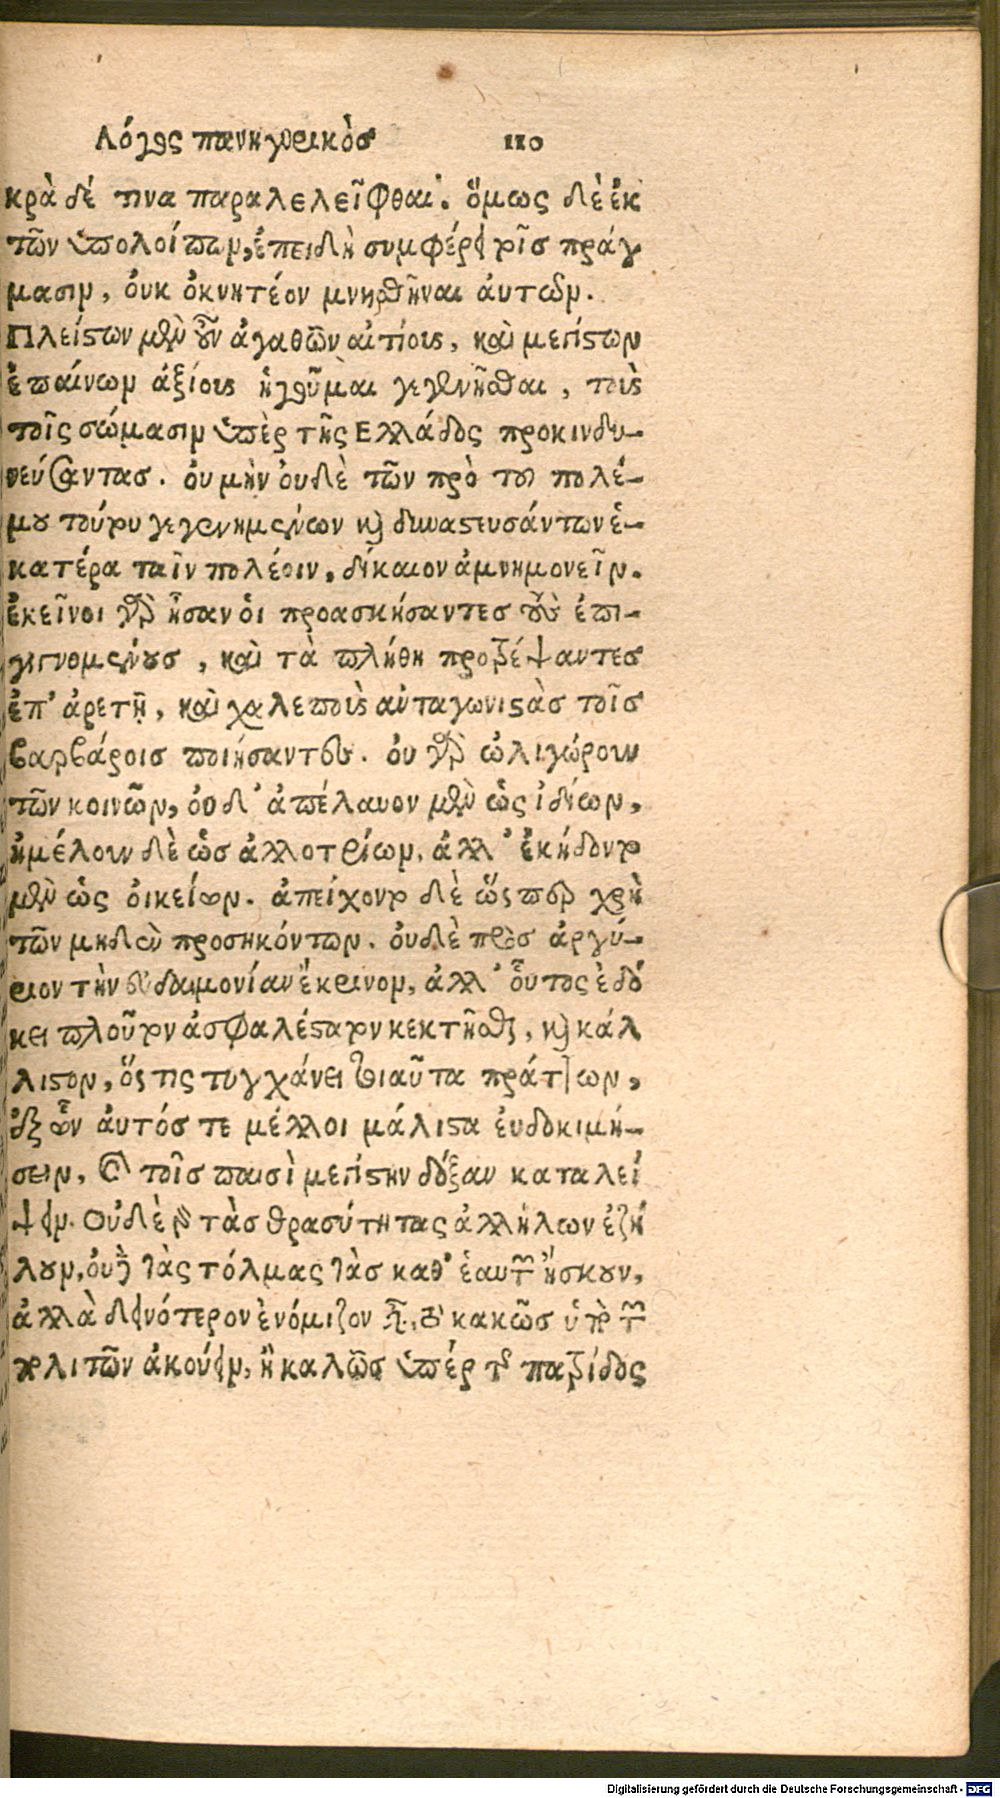 Λόγος πανηγυρικὸσ 110
κρὰ δέ τινα παραλελεῖφθαι. ὅμως δὲ ἐκ
τῶν ὑπολοίπων, ἐπειδὴ συμφέρει τοῖσ πράγ
μασιν, ὀυκ ὀκνητέον μνησθῆναι ἀυτῶν.
Πλείστων μὲν οὖν ἀγαθῶν αἰτίους, καὶ μεγίστων
ἐπαίνων ἀξίους ἡγοῦμαι γεγενῆσθαι, τοὺς
τοῖς σώμασιν ὑπὲρ τῆς Ελλάδος προκινδυ-
νεύσαντασ. ὀυ μὴν ὀυδὲ τῶν πρὸ του πολέ-
μου τούτου γεγενημένων καὶ δυναστευσάντων ἑ-
κατέρα ταῖν πολέοιν, δίκαιον ἀμνημονεῖν.
ἐκεῖνοι γὰρ ἦσαν ὁι προασκήσαντεσ τοὺς ἐπι-
γιγνομένουσ, καὶ τὰ πλήθη προτρέψαντεσ
ἐπ' ἀρετῇ, καὶ χαλεποὺς ἀνταγωνιστὰσ τοῖσ
βαρβάροισ ποιήσαντες. ὀυ γὰρ ὠλιγώρουν
τῶν κοινῶν, ὀυδ' ἀπέλαυον μὲν ὡς ἰδίων,
ἠμέλουν δὲ ὡσ ἀλλοτρίων, ἀλλ' ἐκήδοντο
μὲν ὡς ὀικείων. ἀπείχοντο δὲ ὥσπερ χρὴ
τῶν μηδὲν προσηκόντων. ὀυδὲ πρὸσ ἀργύ-
ριον τὴν ευδαιμονίαν ἔκρινον, ἀλλ' οὗτος ἐδό
κει πλοῦτον ἀσφαλέστατον κεκτῆσθαι, καὶ κάλ
λιστον, ὅστις τυγχάνει τοιαῦτα πράττων,
ἐξ ὧν ἀυτόσ τε μέλλοι μάλιστα ἐυδοκιμή-
σειν, καὶ τοῖσ παισὶ μεγίστην δόξαν καταλεί
ψειν. Ουδὲ τὰσ θρασύτητας ἀλλήλων ἐζή
λουν, ὀυδὲ τὰς τόλμας τὰσ καθ' ἑαυτῶν ἤσκουν,
ἀλλὰ δεινότερον ἐνόμιζον εἶναι, κακῶσ ὑπὸ τῶν
πολιτῶν ἀκούειν, ἢ καλῶσ ὑπέρ τῆς πατρίδος
Digitalisierung gefördert durch die Deutsche Forschungsgemeinschaft - DFG